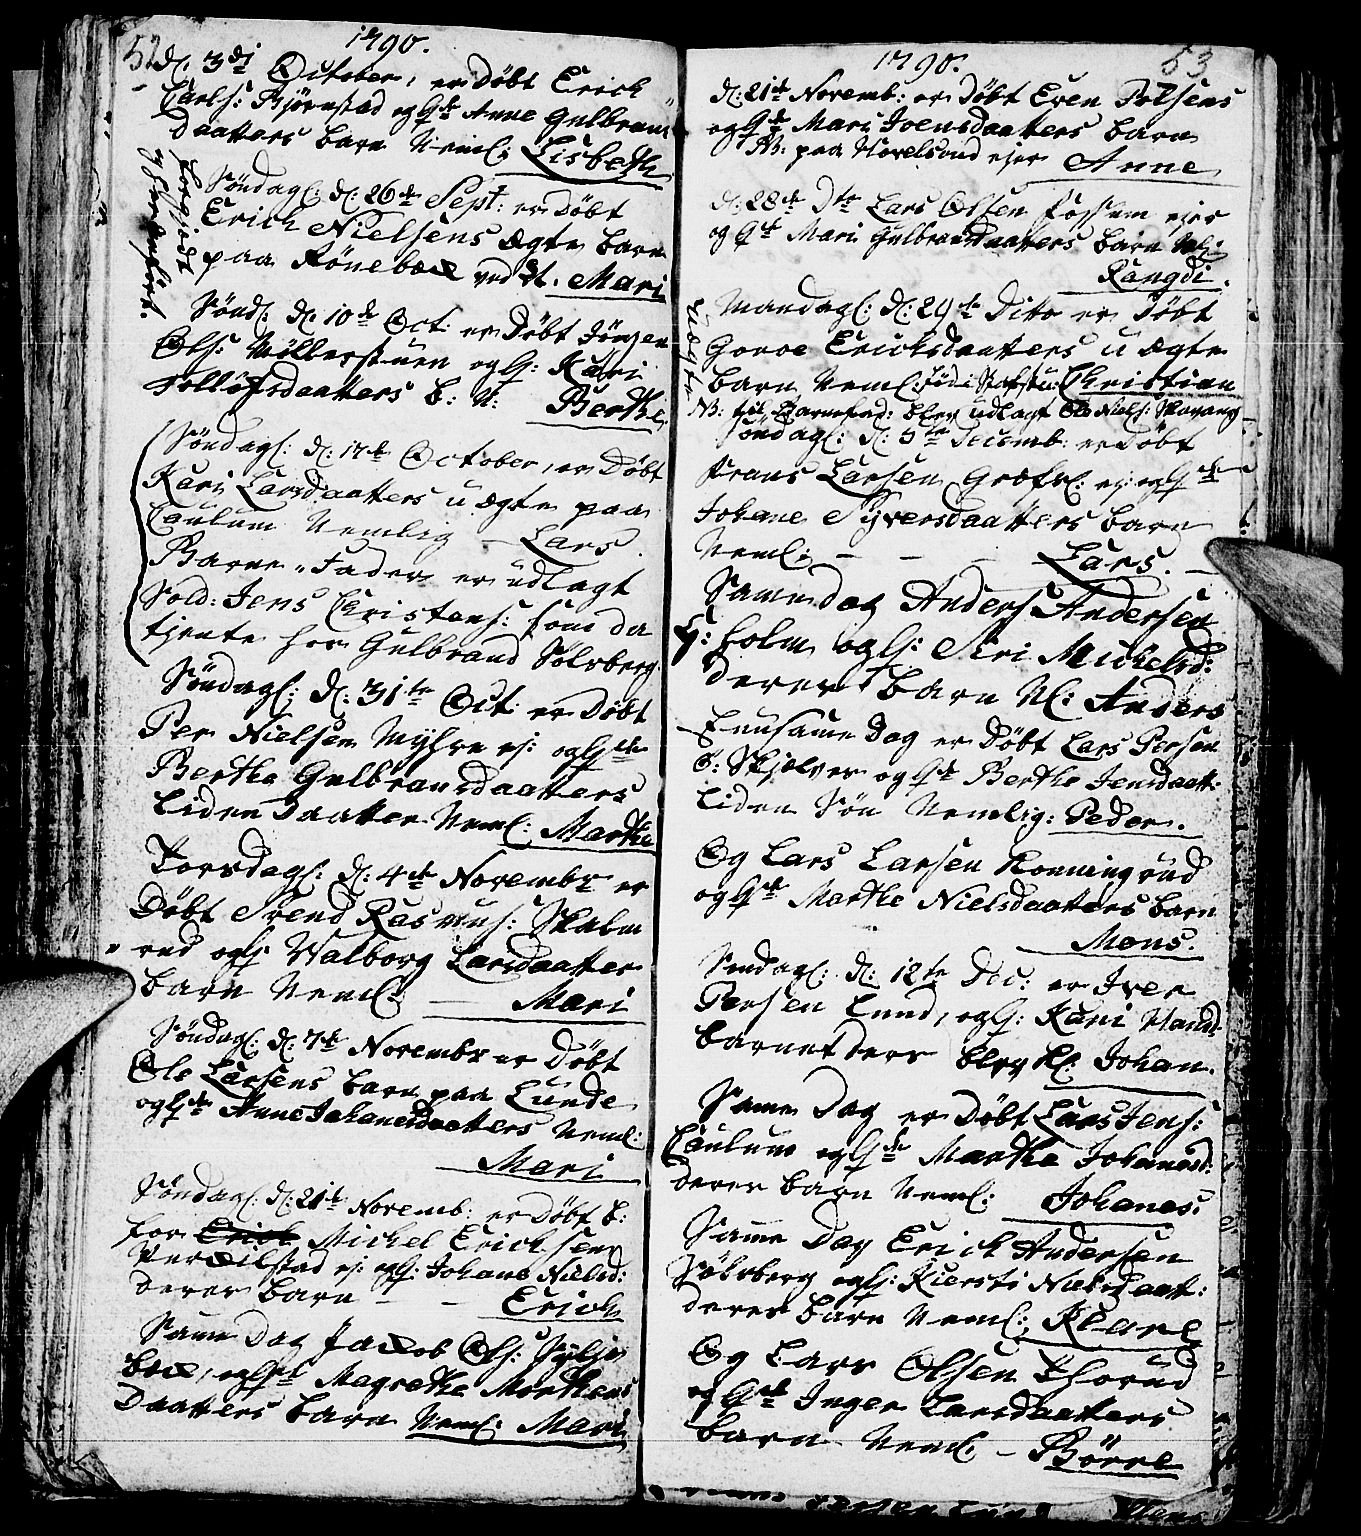 52
1790.
d. 3di October, er døbt Erich
Carls: Bjørnstad og Hst Anne Gulbrans
daatters barn Neml: Lisbeth
forgiidt
og her anført.
Søndagl: d: 26de Sept: er døbt
Erich Nielsens ægte barn
paa Rønebæk ved N. Mari
Sønd: d. 10de Oct: er døbt Jørgen
Ols: Møllerstuen og H: Kari
Tolløfsdaatters b: N: Berthe
Søndagl: d: 17de October, er døbt
Kari Larsdaatters u ægte paa
Caulum Nemlig - Lars.
Barne-Fader er udlagt
Sold: Jens Christens: som da
tjente hos Gulbrand Sølvberg.
Søndagl: d. 31te Oct: er døbt
Per Nielsen Myhre ej: og Hst
Berthe Gulbransdaatters
liden Daatter Neml: Marthe
Torsdagl: d: 4de Novembr er
døbt Svend Rasmus: Skalm
rud og H Walborg Larsdaatter
barn Neml: Mari
Søndagl: d: 7de Novembr er døbt
Ole Larsens barn paa Lunde
og Hst Anne Johanesdaatters Neml:
Mari
Søndagl: d: 21de Novemb: er døbt b:
for Erich Michel Ericksens
ej: og H: Johane Nielsd:
deres barn - - Erich
Samme Dag Jacob Ols: Sylje
bæk, og Hst Magrethe Morthens
Daatters barn Neml: Mari
1790.
53
d: 21de Novemb: er døbt Even Polsens
og Hst Mari Joensdaatters barn
NB: paa Hovelsrud ejer Anne
d: 28de Dto Lars Olsen Fossum ejer
og Hst Mari Gulbransdaatters barn Nl:
Rangdi.
uægte
Mandagl: d: 29de Ditto er døbt
Goroe Ericksdaatters u ægte
barn Neml: Christian
NB: til Barnefad: blev udlagt Ole Niels: Skavang
Søndagl: d: 5te Decemb: er døbt
Frans Larsen Ej: og Hst
Johane Syversdaatters barn
Neml: - - - Lars.
Same dag Anders Andersen
Holm og H: Siri Mickelsd:
deres barn Nl: Anders
Enu same Dag er døbt Lars Persen
Ø: Skjølver og Hst Berthe Jensdaatt:
liden Søn Nemlig: Peder.
Og Lars Larsen Honningrud
og Hst Marthe Nielsdaatters barn
Mons.
Søndagl: d: 12te Dec: er Iver
Persen Lund, og H: Kari Hansd
barnet deres blev kl: Johan.
Same Dag er døbt Lars Jens:
Caulum og Hst Marthe Johanesd:
deres barn Neml: Johanes:
Same Dag Erick Andersen
Sølvberg og H: Kiersti Nielsdaat:
deres barn Neml: Karl
Og Lars Olsen Thorud
og Hst Inger Larsdaatters
barn Neml: - Børre